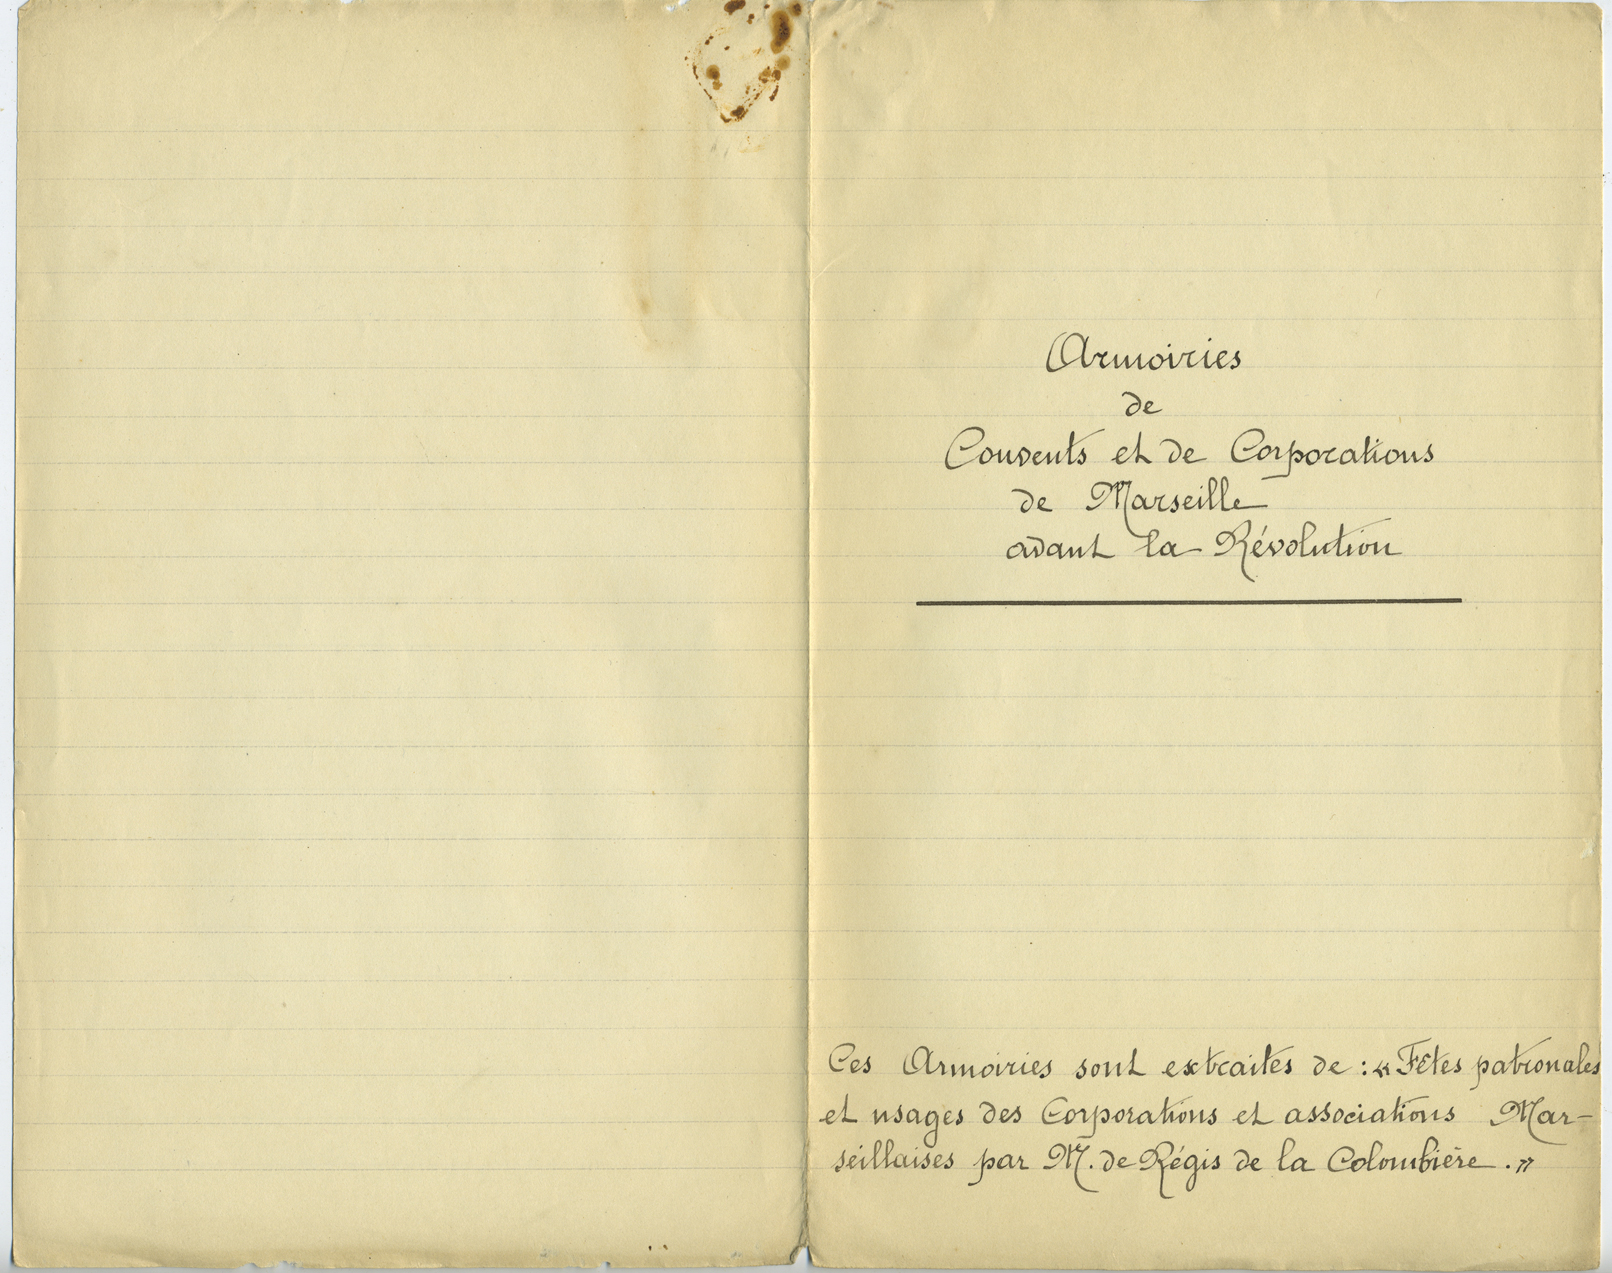 Armoiries
de
Couvents et de Corporations
de Marseille
avant la Révolution
Ces Armoiries sont extraites de : « Fêtes patronales
et usages des Corporations et associations Mar-
seillaises par M. de Régis de la Colombière . »